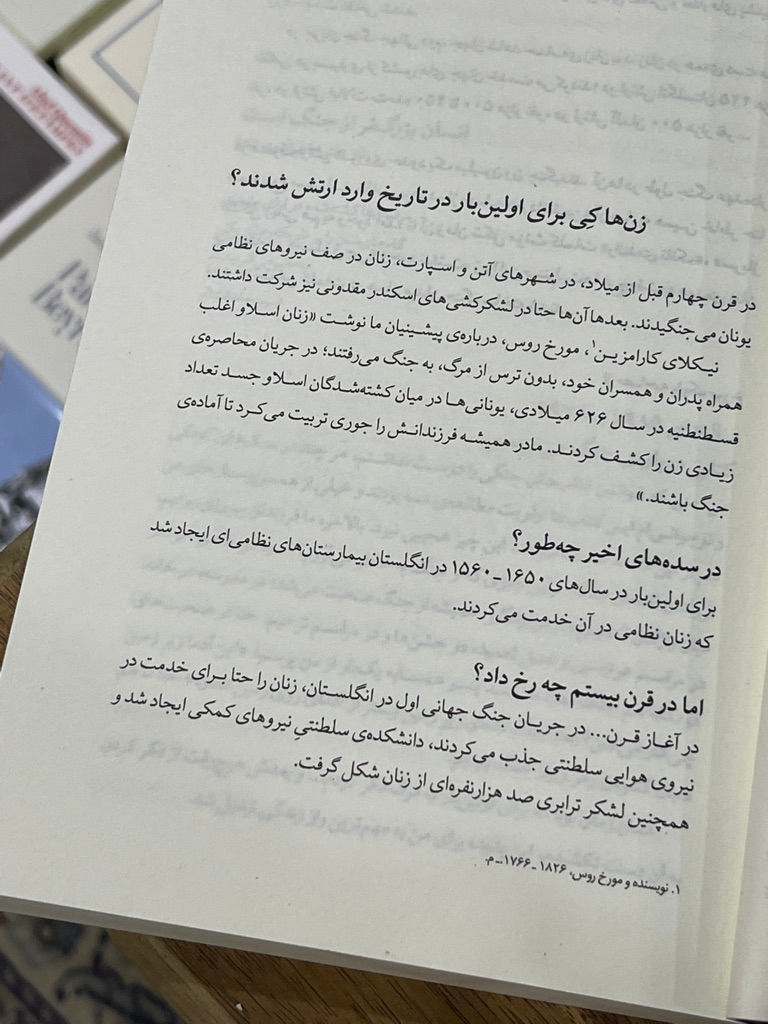 زن‌ها کِی برای اولین‌بار در تاریخ وارد ارتش شدند؟
در قرن چهارم قبل از میلاد، در شهرهای آتن و اسپارت، زنان در صف نیروهای نظامی
یونان می جنگیدند. بعدها آن‌ها حتا در لشکرکشی‌های اسکندر مقدونی نیز شرکت داشتند.
نیکلای کارامزین۱، مورخ روس، درباره‌ی پیشینیان ما نوشت «زنان اسلاو اغلب
همراه پدران و همسران خود، بدون ترس از مرگ، به جنگ می‌رفتند؛ در جریان محاصره‌ی
قسطنطنیه در سال ۶۲۶ میلادی، یونانی‌ها در میان کشته‌شدگان اسلاو جسد تعداد
زیادی زن را کشف کردند. مادر همیشه فرزندانش را جوری تربیت می‌کرد تا آماده‌ی
جنگ باشند.»
در سده‌های اخیر چه‌طور؟
برای اولین‌بار در سال‌های ۱۶۵۰ ـ ۱۵۶۰ در انگلستان بیمارستان‌های نظامی‌ای ایجاد شد
که زنان نظامی در آن خدمت می‌کردند.
اما در قرن بیستم چه رخ داد؟
در آغاز قرن... در جریان جنگ جهانی اول در انگلستان، زنان را حتا برای خدمت در
نیروی هوایی سلطنتی جذب می‌کردند، دانشکده‌ی سلطنتیِ نیروهای کمکی ایجاد شد و
همچنین لشکر ترابری صد هزارنفره‌ای از زنان شکل گرفت.
۱. نویسنده و مورخ روس، ۱۸۲۶ ـ ۱۷۶۶ ـ م.